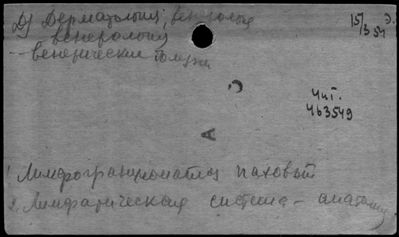 Д) Дерматология, венерология
15/3 54
венерология
— венерические болезни
Чит.
463549
А
1. Лимфогранулематоз паховый
2. Лимфатическая система – анатомия